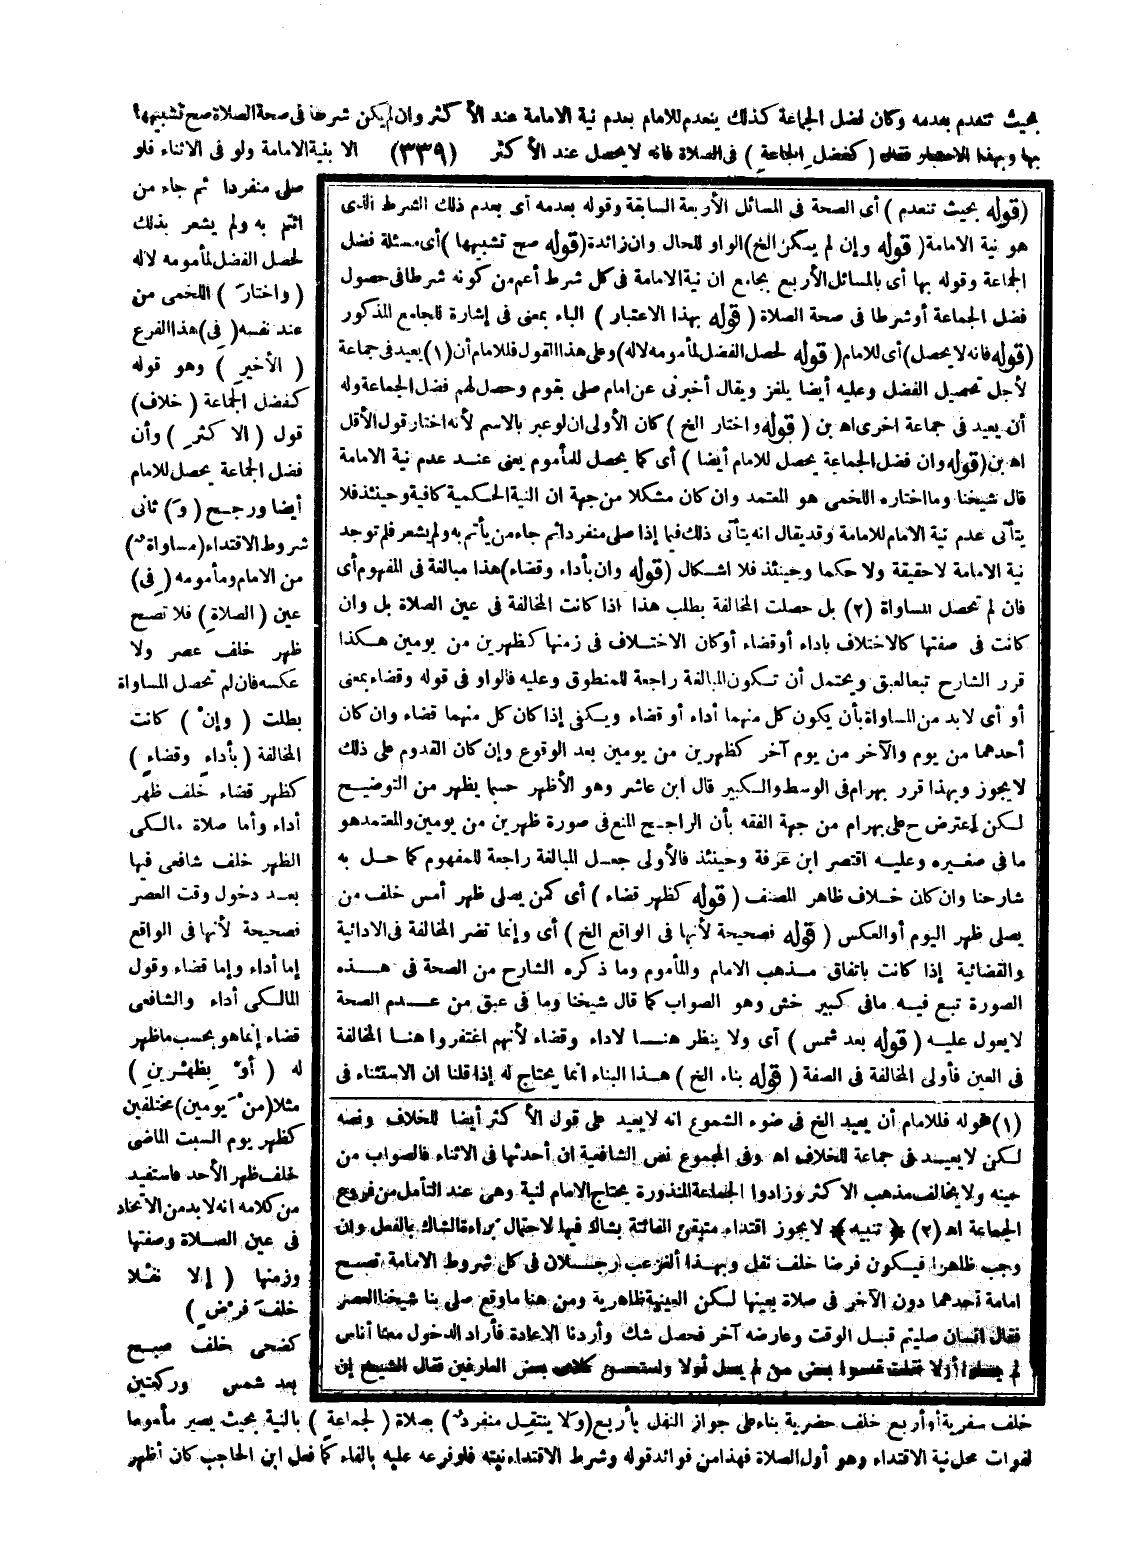 بحيث تنعدم بعدمه وكان فضل الجماعة كذلك ينعدم للامام بعدم نية الامامة عند الأكثر وان لم يكن شرطا فى صحة الصلاة صح تشبيهها
بها وبهذا الاعتبار فقال (كفضل الجماعة) فى الصلاة فانه لا يحصل عند الأكثر (٣٣٩) الا بنية الامامة ولو فى الاثناء فلو
صلى منفردا ثم جاء من
ائتم به ولم يشعر بذلك
لحصل الفضل لمأمومه لا له
(واختار) اللخمى من
عند نفسه (فى) هذا الفرع
(الأخير) وهو قوله
كفضل الجماعة (خلاف)
قول (الأكثر) وأن
فضل الجماعة يحصل للامام
أيضا ورجح (و) ثانى
شروط الاقتداء (مساواة)
من الامام ومأمومه (فى)
عين (الصلاة) فلا تصح
ظهر خلف عصر ولا
عكسه فان لم تحصل المساواة
بطلت (وإن) كانت
المخالفة (بأداء وقضاء)
كظهر قضاء خلف ظهر
أداء وأما صلاة مالكى
الظهر خلف شافعى فيها
بعد دخول وقت العصر
فصحيحة لأنها فى الواقع
إما أداء وإما قضاء وقول
المالكى أداء والشافعى
قضاء إنما هو بحسب ما ظهر
له (أو بظهرين)
مثلا (من يومين) مختلفين
كظهر يوم السبت الماضى
خلف ظهر الأحد فاستفيد
من كلامه انه لا بد من الاتحاد
فى عين الصلاة وصفتها
وزمنها (إلا نفلا
خلف فرض)
كضحى خلف صبح
بعد شمس وركعتين
خلف سفرية أو أربع خلف حضرية بناء على جواز النفل بأربع (ولا ينتقل منفرد) بصلاة (لجماعة) بالنية بحيث يصير مأموما
لفوات محل نية الاقتداء وهو أول الصلاة فهذا من فوائد قوله وشرط الاقتداء نيته فلو فرعه عليه بالفاء كما فعل ابن الحاجب كان أظهر
(قوله بحيث تنعدم) أى الصحة فى المسائل الأربعة السابقة وقوله بعدمه أى بعدم ذلك الشرط الذى
هو نية الامامة (قوله وإن لم يكن الخ) الواو للحال وان زائدة (قوله صح تشبيهها) أى مسئلة فضل
الجماعة وقوله بها أى بالمسائل الأربع بجامع ان نية الامامة فى كل شرط أعم من كونه شرطا فى حصول
فضل الجماعة أو شرطا فى صحة الصلاة (قوله بهذا الاعتبار) الباء بمعنى فى إشارة للجامع المذكور
(قوله فانه لا يحصل) أى للامام (قوله لحصل الفضل لمأمومه لا له) وعلى هذا القول فللامام أن (١) يعيد فى جماعة
لأجل تحصيل الفضل وعليه أيضا يلغز ويقال أخبرنى عن امام صلى بقوم وحصل لهم فضل الجماعة وله
أن يعيد فى جماعة اخرى اه بن (قوله واختار الخ) كان الأولى ان لو عبر بالاسم لأنه اختار قول الأقل
اه بن (قوله وان فضل الجماعة يحصل للامام أيضا) أى كما يحصل للمأموم يعنى عند عدم نية الامامة
قال شيخنا وما اختاره اللخمى هو المعتمد وان كان مشكلا من جهة ان النية الحكمية كافية وحينئذ فلا
يتأتى عدم نية الامام للامامة وقد يقال انه يتأتى ذلك فيما إذا صلى منفردا ثم جاء من يأتم به ولم يشعر فلم توجد
نية الامامة لا حقيقة ولا حكما وحينئذ فلا اشكال (قوله وان بأداء وقضاء) هذا مبالغة فى المفهوم أى
فان لم تحصل المساواة (٢) بل حصلت المخالفة بطلب هذا اذا كانت المخالفة فى عين الصلاة بل وان
كانت فى صفتها كالاختلاف باداء أو قضاء أو كان الاختلاف فى زمنها كظهرين من يومين هكذا
قرر الشارح تبعا لعبق ويحتمل أن تكون المبالغة راجعة للمنطوق وعليه فالواو فى قوله وقضاء بمعنى
أو أى لا بد من المساواة بأن يكون كل منهما أداء أو قضاء ويكفى إذا كان كل منهما قضاء وان كان
أحدهما من يوم والآخر من يوم آخر كظهرين من يومين بعد الوقوع وإن كان القدوم على ذلك
لا يجوز وبهذا قرر بهرام فى الوسط والكبير قال ابن عاشر وهو الأظهر حسبما يظهر من التوضيح
لكن اعترض ح على بهرام من جهة الفقه بأن الراجح المنع فى صورة ظهرين من يومين والمعتمد هو
ما فى صغيره وعليه اقتصر ابن عرفة وحينئذ فالأولى جعل المبالغة راجعة للمفهوم كما حل به
شارحنا وان كان خلاف ظاهر المصنف (قوله كظهر قضاء) أى كمن يصلى ظهر أمس خلف من
يصلى ظهر اليوم أو العكس (قوله فصحيحة لأنها فى الواقع الخ) أى وإنما تضر المخالفة فى الادائية
والقضائية إذا كانت باتفاق مذهب الامام والمأموم وما ذكره الشارح من الصحة فى هذه
الصورة تبع فيه ما فى كبير خش وهو الصواب كما قال شيخنا وما فى عبق من عدم الصحة
لا يعول عليه (قوله بعد شمس) أى ولا ينظر هنا لاداء وقضاء لأنهم اغتفروا هنا المخالفة
فى العين فأولى المخالفة فى الصفة (قوله بناء الخ) هذا البناء انما يحتاج له إذا قلنا ان الاستثناء فى
(١) قوله فللامام أن يعيد الخ فى ضوء الشموع انه لا يعيد على قول الأكثر أيضا للخلاف ونصه
لكن لا يعيد فى جماعة للخلاف اه وفى المجموع نص الشافعية ان أحدثها فى الاثناء فالصواب من
حينه ولا يخالف مذهب الاكثر وزادوا الجماعة المنذورة يحتاج الامام لنية وهى عند التأمل من فروع
الجماعة اه (٢) ﴿تنبيه﴾ لا يجوز اقتداء متيقن الفائتة بشاك فيها لاحتمال براءة الشاك بالفعل وان
وجب ظاهرا فيكون فرضا خلف نفل وبهذا ألغز عب رجلان فى كل شروط الامامة تصح
امامة أحدهما دون الآخر فى صلاة بعينها لكن العينية ظاهرية ومن هنا ما وقع صلى بنا شيخنا العصر
فقال انسان صليتم قبل الوقت وعارضه آخر فحصل شك وأردنا الاعادة فأراد الدخول معنا أناس
لم يصلوا أولا فقلت من لم يصل أولا كلامى بعض العارفين فقال الشيخ إن